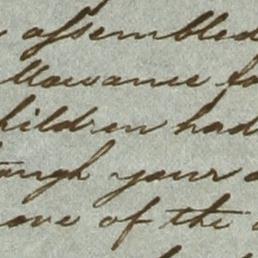 assembled
llowance fo
hildren had
ough your
ave of the